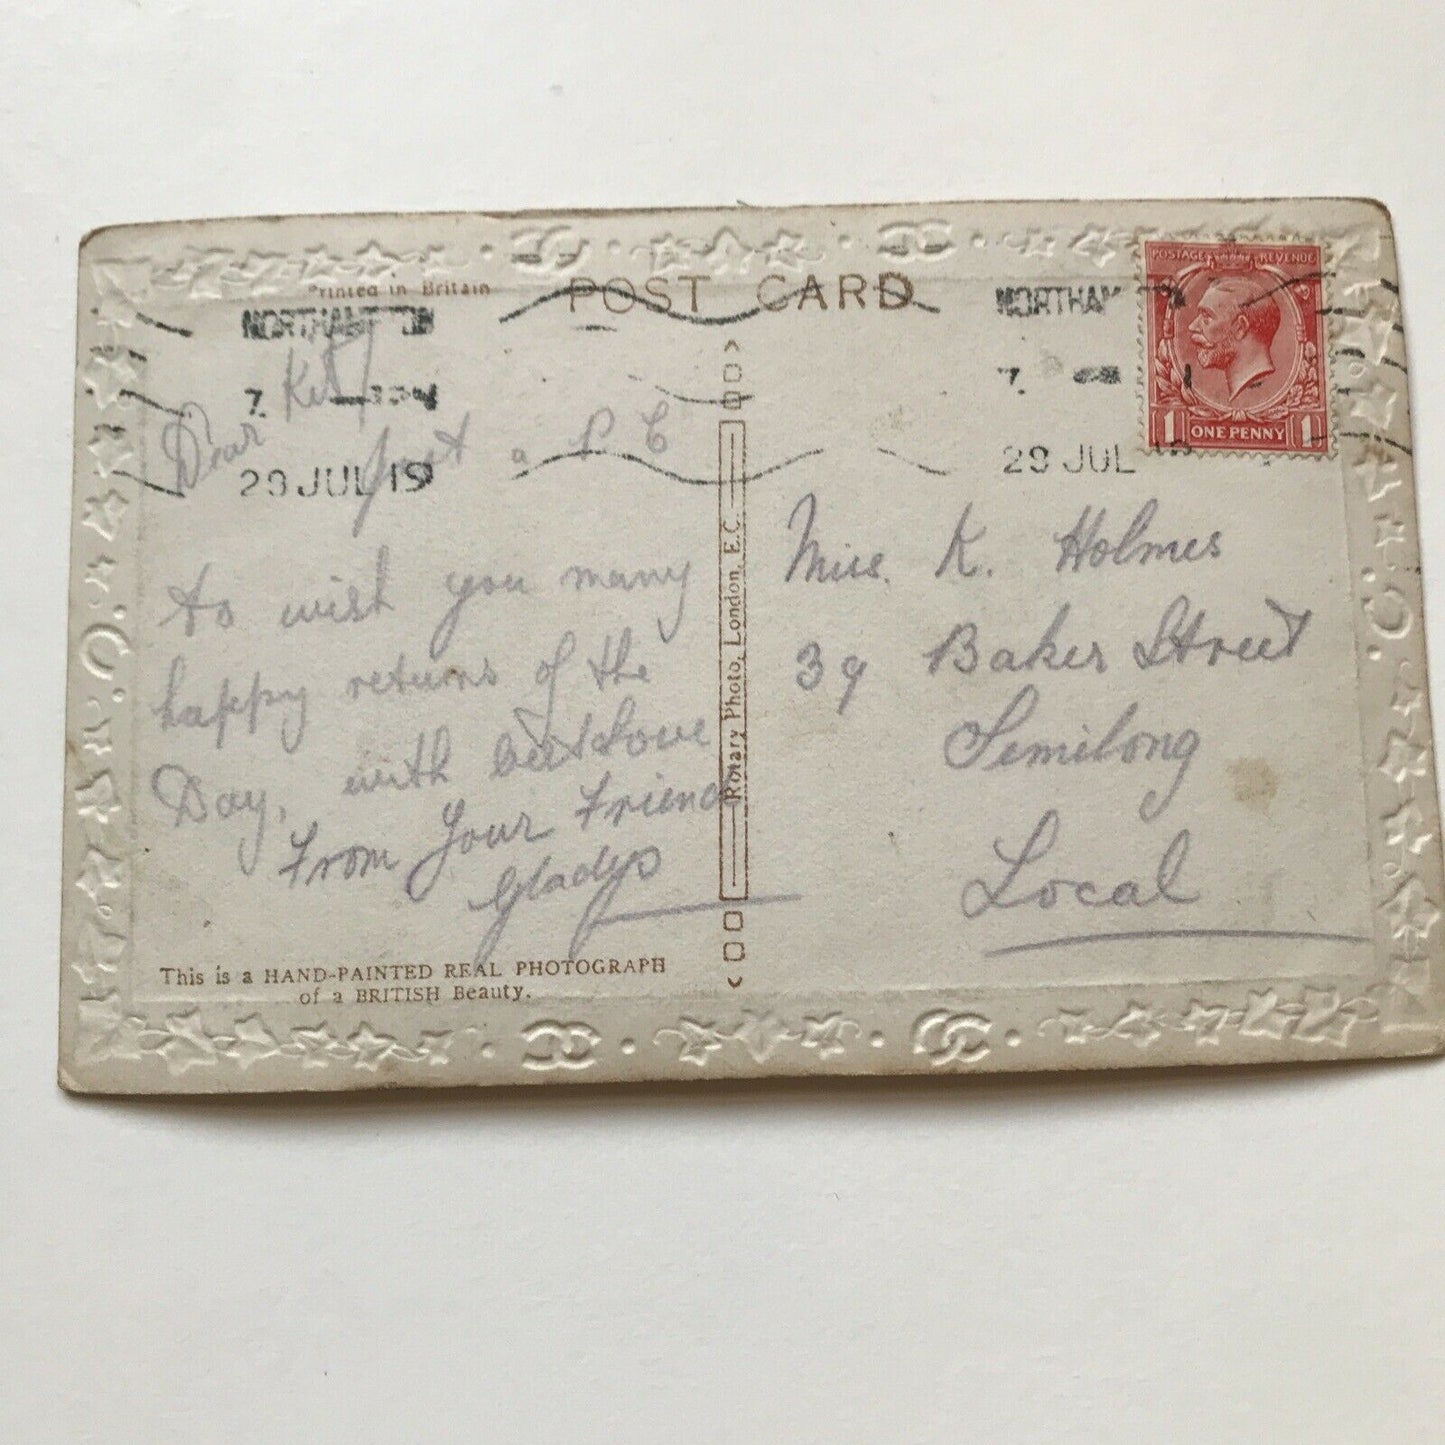 Printed in Britain
POST CARD
NORTHAMPTON
7.
29 JUL 19
NORTHAM
7.
29 JUL 19
POSTAGE REVENUE
1 ONE PENNY 1
Dear
Just a P C
to wish you many
happy returns of the
Day, with best Love
From Your Friend
Gladys
This is a HAND-PAINTED REAL PHOTOGRAPH
of a BRITISH Beauty.
Rotary Photo, London, E.C.
Miss. K. Holmes
39 Baker Street
Semilong
Local